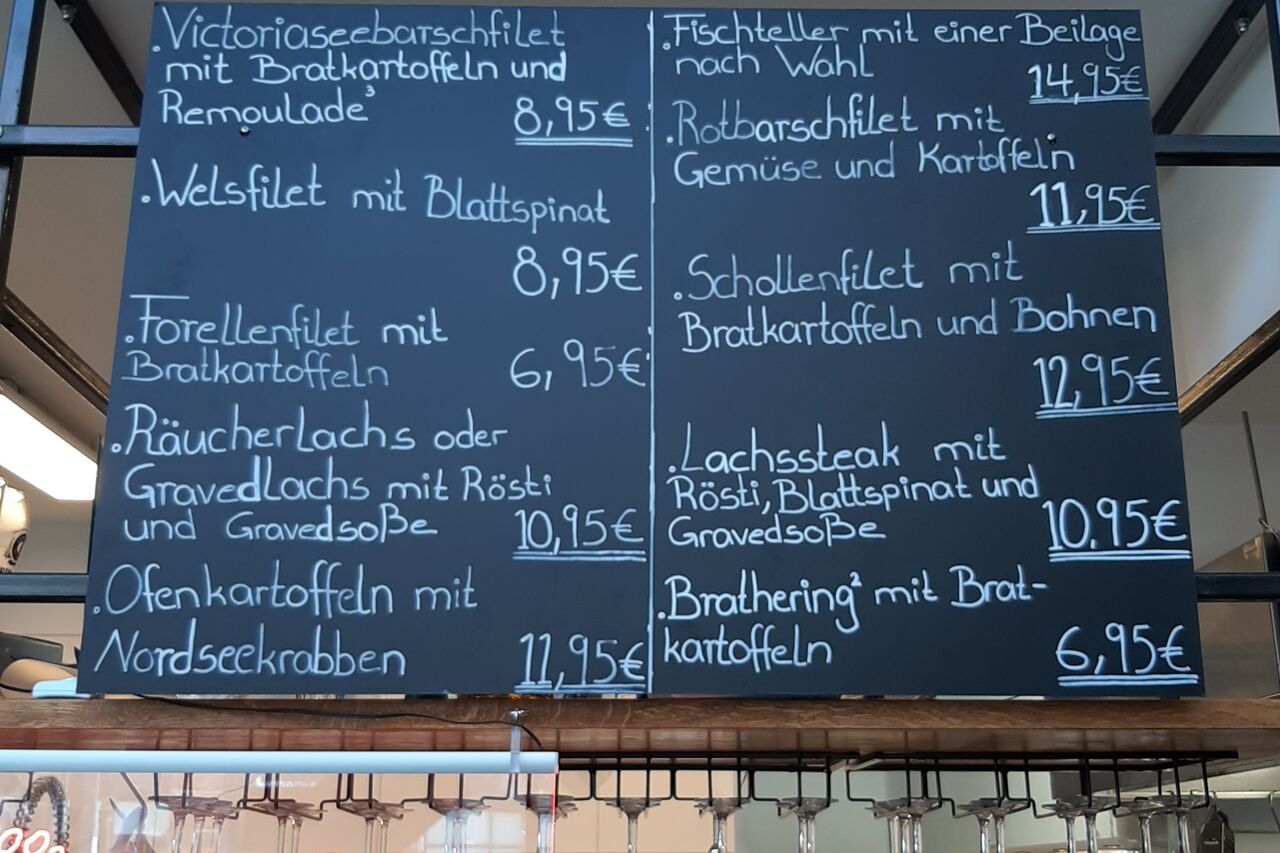 .Victoriaseebarschfilet
mit Bratkartoffeln und
Remoulade³ 8,95€
.Welsfilet mit Blattspinat
8,95€
.Forellenfilet mit
Bratkartoffeln 6,95€
.Räucherlachs oder
Gravedlachs mit Rösti
und Gravedsoße 10,95€
.Ofenkartoffeln mit
Nordseekrabben 11,95€
.Fischteller mit einer Beilage
nach Wahl 14,95€
.Rotbarschfilet mit
Gemüse und Kartoffeln
11,95€
.Schollenfilet mit
Bratkartoffeln und Bohnen
12,95€
.Lachssteak mit
Rösti, Blattspinat und
Gravedsoße 10.95€
.Brathering² mit Brat-
kartoffeln 6,95€